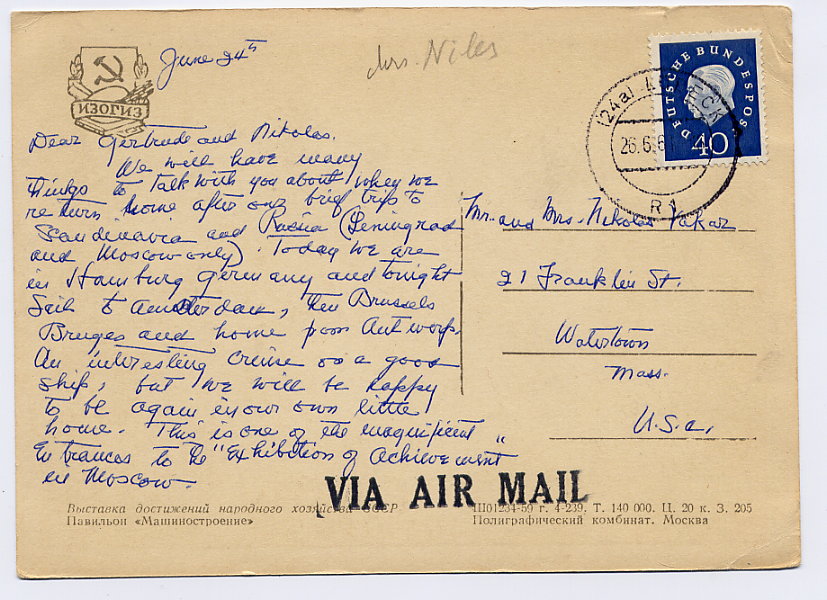 June 24th
Mrs. Niles
ИЗОГИЗ
DEUTSCHE BUNDESPOST
40
(24a)
26.6.6
R1
Dear Gertrude and Nikolas.
We will have many
things to talk with you about when we
return home after our brief trip to
Scandinavia and Russia (Leningrad
and Moscow only). Today we are
in Hamburg Germany and tonight
Sail to Amsterdam, then Brussels
Bruges and home from Antwerp.
An interesting cruise on a good
ship, but we will be happy
to be again in our own little
home. This is one of the magnificent
Entrances to the "Exhibition of Achievement"
in Moscow.
Mr. and Mrs. Nikolas Vakar
21 Franklin St.
Watertown
Mass.
U.S.A.
VIA AIR MAIL
Выставка достижений народного хозяйства СССР
Павильон «Машиностроение»
Ш01234-59 г. 4-239. Т. 140 000. Ц. 20 к. З. 205
Полиграфический комбинат. Москва